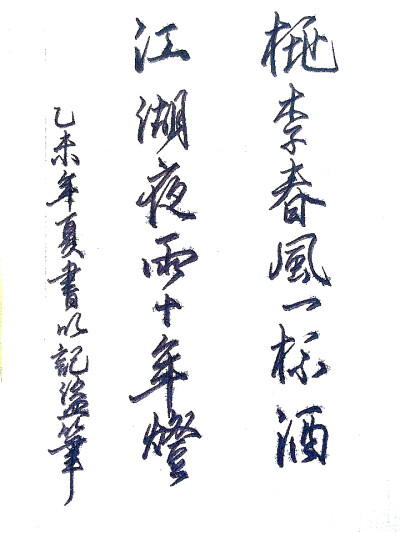 桃李春風一杯酒
江湖夜雨十年燈
乙未年夏書以記盜筆